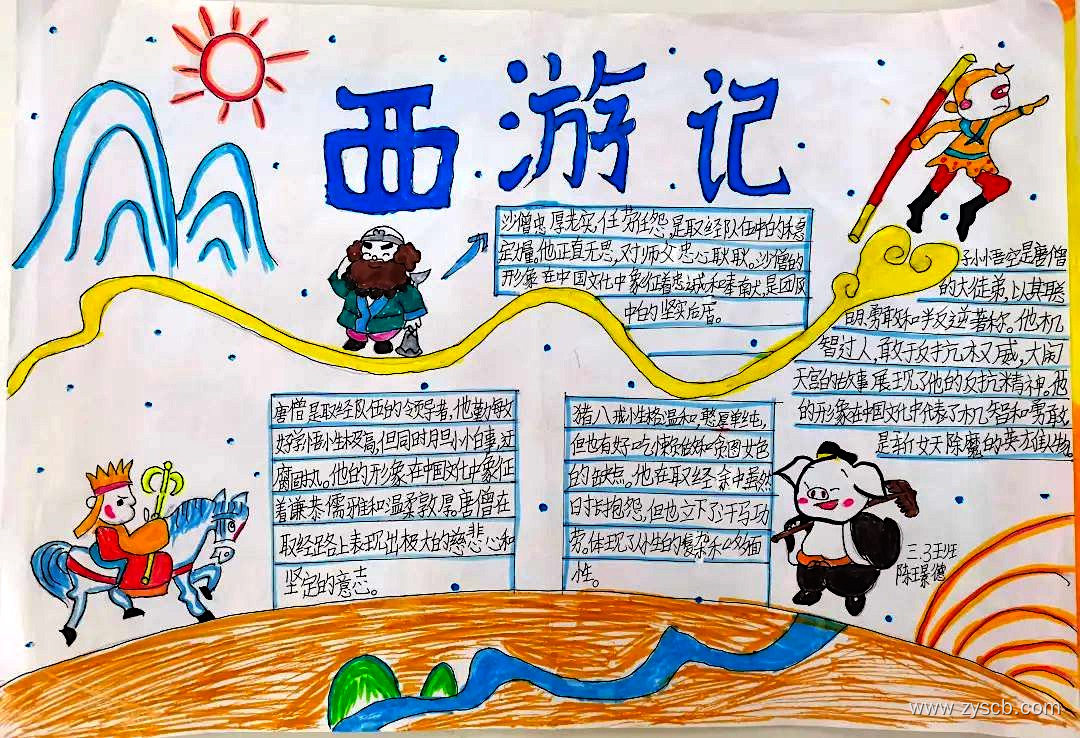 西游记
沙僧忠厚老实,任劳任怨,是取经队伍中的稳
定力量。他正直无恶,对师父忠心耿耿。沙僧的
形象在中国文化中象征着忠诚和奉献,是团队
中的坚实后盾。
孙小悟空是唐僧
的大徒弟,以其聪
明、勇敢和叛逆著称。他机
智过人,敢于反抗权威,大闹
天宫的故事展现了他的反抗精神。他
的形象在中国文化中代表了机智和勇敢,
是斩妖除魔的英雄人物。
唐僧是取经队伍的领导者,他勤敏
好学悟性极高,但同时胆小怕事,迂
腐固执。他的形象在中国文化中象征
着谦恭儒雅和温柔敦厚。唐僧在
取经路上表现出极大的慈悲心和
坚定的意志。
猪八戒性格温和,憨厚单纯,
但也有好吃懒做和贪图女色
的缺点。他在取经途中虽然
时长抱怨,但也立下了汗马功
劳。体现了人性的复杂和多面
性。
三.3班
陈景德
www.zyscb.com